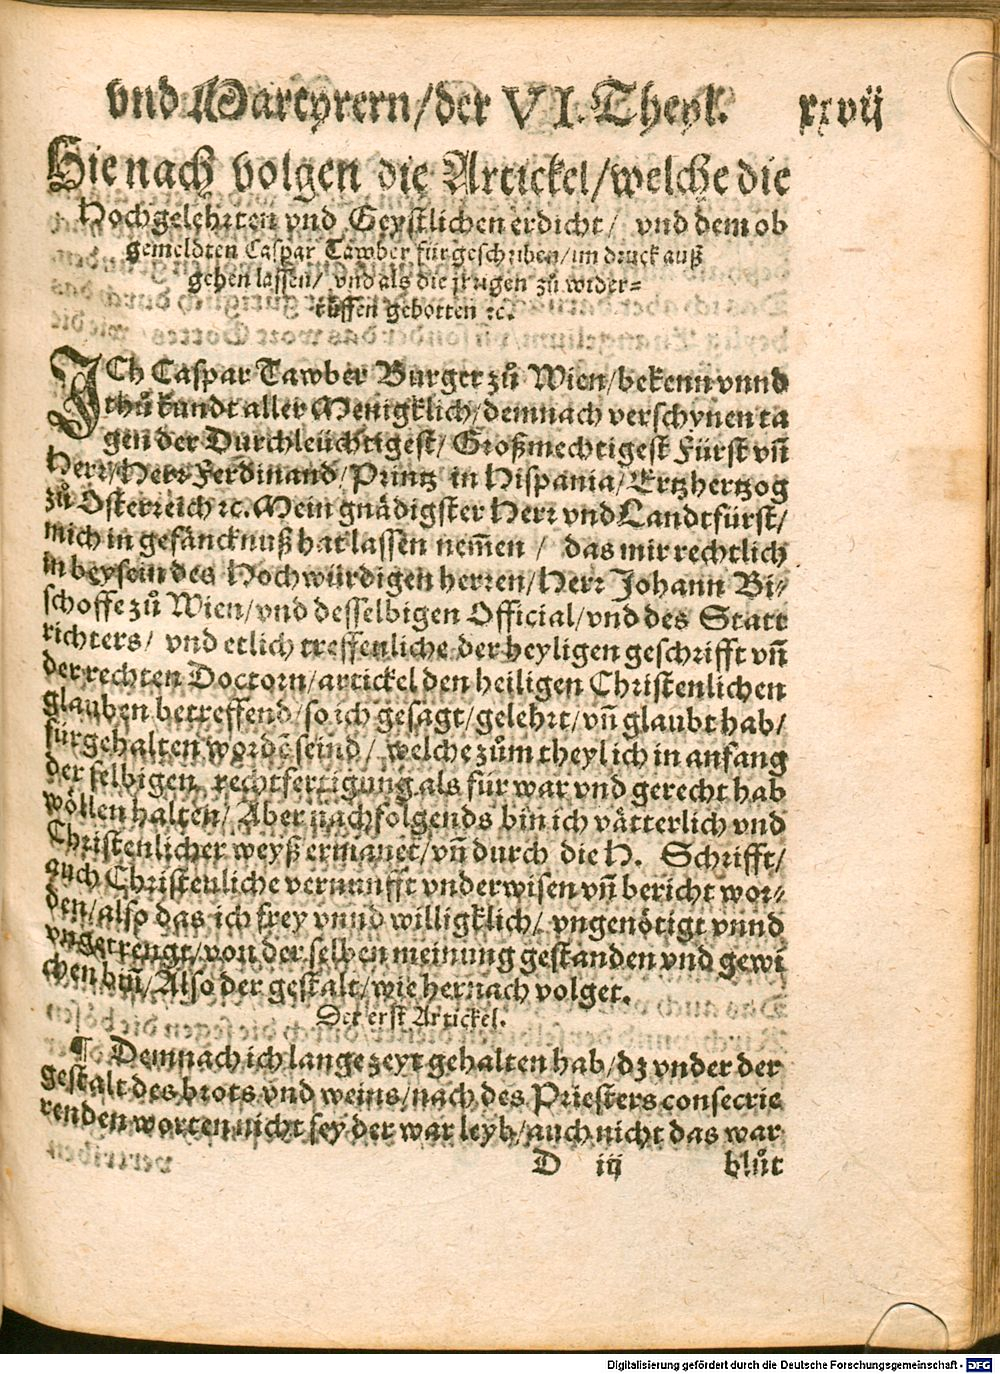 vnd Martyrern/der VI. Theyl. xxvij
Hienach volgen die Artickel/welche die
Hochgelehrten vnd Geystlichen erdicht/ vnd dem ob
gemeldten Caspar Tawber fürgeschriben/im druck auß
gehen lassen/ vnd als die jrrigen zů wider-
růffen gebotten ꝛc.
ICh Caspar Tawber Burger zů Wien/bekenn vnnd
thů kundt aller Menigklich/demnach verschynen ta
gen der Durchleüchtigest/ Großmechtigest Fürst vñ
Herr/Herr Ferdinand/Printz in Hispania/Ertzhertzog
zů Osterreich ꝛc. Mein gnädigster Herr vnd Landtfürst/
mich in gefäncknuß hat lassen nem̃en / das mir rechtlich
in beysein des Hochwürdigen herren/Herr Johann Bi-
schoffe zů Wien/vnd desselbigen Official/vnd des Statt
richters/ vnd etlich treffenliche der heyligen geschrifft vñ
der rechten Doctorn/artickel den heiligen Christenlichen
glauben betreffend/so ich gesagt/gelehrt/vñ glaubt hab/
fürgehalten wordẽ seind/ welche zům theyl ich in anfang
der selbigen rechtfertigung als für war vnd gerecht hab
wöllen halten/ Aber nachfolgends bin ich vätterlich vnd
Christenlicher weyß ermanet/vñ durch die H. Schrifft/
auch Christenliche vernunfft vnderwisen vñ bericht wor-
den/also das ich frey vnnd willigklich/ vngenötigt vnnd
vngetrengt/von der selben meinung gestanden vnd gewi
chen biñ/Also der gestalt/wie hernach volget.
Der erst Artickel.
¶ Demnach ich lange zeyt gehalten hab/dz vnder der
gestalt des brots vnd weins/nach des Priesters consecrie
renden worten nicht sey der war leyb/auch nicht das war
D iij blůt
Digitalisierung gefördert durch die Deutsche Forschungsgemeinschaft - DFG